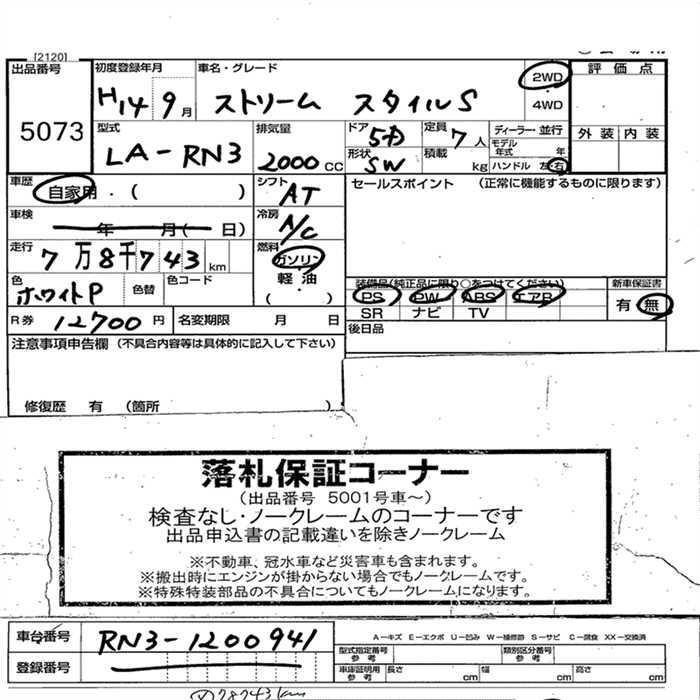 [2120]
出品番号 初度登録年月 車名・グレード 2WD 評価点
5073 H14 9月 ストリーム スタイルS 4WD 外装 内装
型式 LA-RN3 排気量 2000CC ドア 5D 定員 7人 ディーラー・並行
形状 SW 積載 kg モデル年式 年 ハンドル 左・右
車歴 自家用・( ) シフト AT セールスポイント (正常に機能するものに限ります)
車検 年 月( 日) 冷房 A/C
走行 7万8千743km 燃料 ガソリン
軽・油
( )
色 ホワイトP 色替 色コード 装備品(純正品に限り○をつけてください) 新車保証書
PS PW ABS エアB 有 無
SR ナビ TV
R券 12700円 名変期限 月 日 後日品
注意事項申告欄 (不具合内容等は具体的に記入して下さい)
修復歴 有 (箇所 )
落札保証コーナー
(出品番号 5001号車～)
検査なし・ノークレームのコーナーです
出品申込書の記載違いを除きノークレーム
※不動車、冠水車など災害車も含まれます。
※搬出時にエンジンが掛からない場合でもノークレームです。
※特殊特装部品の不具合についてもノークレームになります。
車台番号 RN3-1200941 A−キズ E−エクボ U−凹み W−補修跡 S−サビ C−腐食 XX−交換済
登録番号 型式指定番号 参考 類別区分番号 参考
車庫証明用 参考 長さ cm 幅 cm 高さ cm